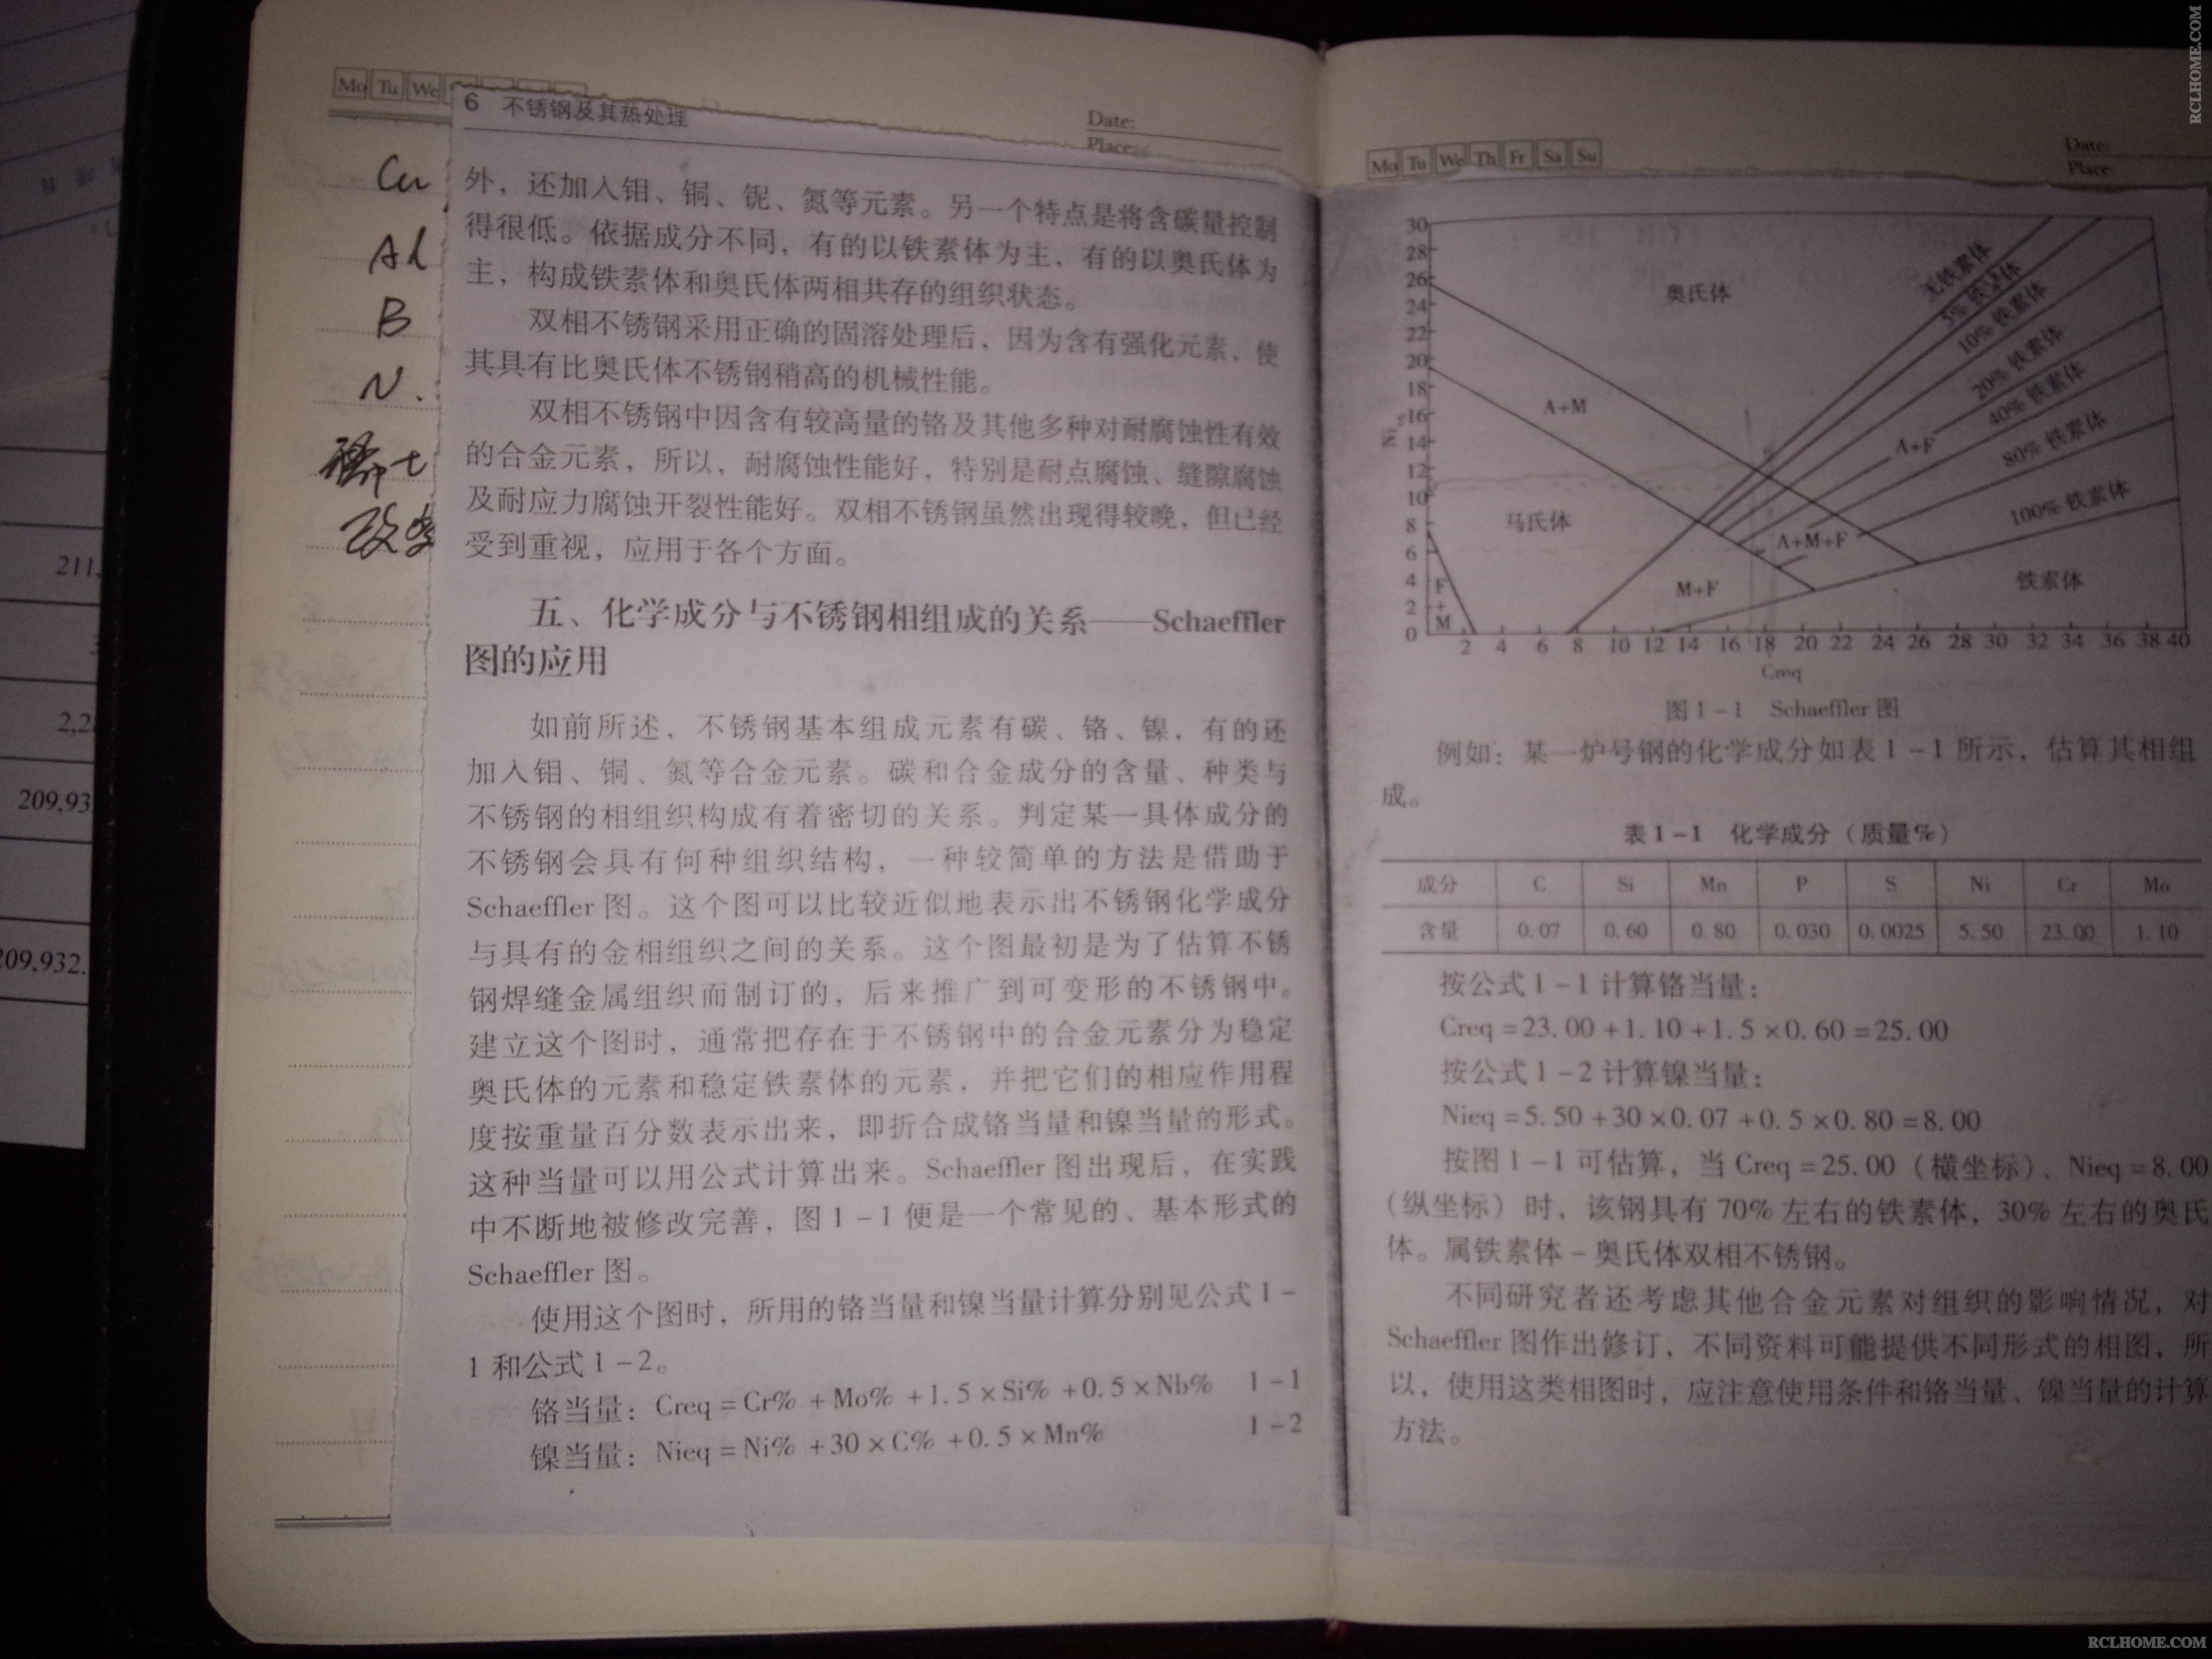 RCLHOME.COM
211,
2,2
209,93
209,932.
Mo Tu We
Date:
Place:
Cu
Al
B
N.
稀土
6 不锈钢及其热处理
外，还加入钼、铜、铌、氮等元素。另一个特点是将含碳量控制
得很低。依据成分不同，有的以铁素体为主，有的以奥氏体为
主，构成铁素体和奥氏体两相共存的组织状态。
双相不锈钢采用正确的固溶处理后，因为含有强化元素，使
其具有比奥氏体不锈钢稍高的机械性能。
双相不锈钢中因含有较高量的铬及其他多种对耐腐蚀性有效
的合金元素，所以，耐腐蚀性能好，特别是耐点腐蚀、缝隙腐蚀
及耐应力腐蚀开裂性能好。双相不锈钢虽然出现得较晚，但已经
受到重视，应用于各个方面。
五、化学成分与不锈钢相组成的关系——Schaeffler
图的应用
如前所述，不锈钢基本组成元素有碳、铬、镍，有的还
加入钼、铜、氮等合金元素。碳和合金成分的含量、种类与
不锈钢的相组织构成有着密切的关系。判定某一具体成分的
不锈钢会具有何种组织结构，一种较简单的方法是借助于
Schaeffler 图。这个图可以比较近似地表示出不锈钢化学成分
与具有的金相组织之间的关系。这个图最初是为了估算不锈
钢焊缝金属组织而制订的，后来推广到可变形的不锈钢中。
建立这个图时，通常把存在于不锈钢中的合金元素分为稳定
奥氏体的元素和稳定铁素体的元素，并把它们的相应作用程
度按重量百分数表示出来，即折合成铬当量和镍当量的形式。
这种当量可以用公式计算出来。Schaeffler 图出现后，在实践
中不断地被修改完善，图 1-1 便是一个常见的、基本形式的
Schaeffler 图。
使用这个图时，所用的铬当量和镍当量计算分别见公式 1-
1 和公式 1-2。
铬当量：Creq = Cr% + Mo% + 1.5 × Si% + 0.5 × Nb% 1-1
镍当量：Nieq = Ni% + 30 × C% + 0.5 × Mn% 1-2
Mo Tu We Th Fr Sa Su
Date:
Place:
30
28
26
24
22
20
18
16
14
12
10
8
6
4
2
0
奥氏体
无铁素体
5% 铁素体
10% 铁素体
20% 铁素体
40% 铁素体
80% 铁素体
100% 铁素体
A+M
A+F
马氏体
A+M+F
M+F
铁素体
F
+
M
2 4 6 8 10 12 14 16 18 20 22 24 26 28 30 32 34 36 38 40
Creq
图 1-1 Schaeffler 图
例如：某一炉号钢的化学成分如表 1-1 所示，估算其相组
成。
表 1-1 化学成分（质量%）
成分 C Si Mn P S Ni Cr Mo
含量 0.07 0.60 0.80 0.030 0.0025 5.50 23.00 1.10
按公式 1-1 计算铬当量：
Creq = 23.00 + 1.10 + 1.5 × 0.60 = 25.00
按公式 1-2 计算镍当量：
Nieq = 5.50 + 30 × 0.07 + 0.5 × 0.80 = 8.00
按图 1-1 可估算，当 Creq = 25.00（横坐标），Nieq = 8.00
（纵坐标）时，该钢具有 70% 左右的铁素体，30% 左右的奥氏
体。属铁素体-奥氏体双相不锈钢。
不同研究者还考虑其他合金元素对组织的影响情况，对
Schaeffler 图作出修订，不同资料可能提供不同形式的相图，所
以，使用这类相图时，应注意使用条件和铬当量、镍当量的计算
方法。
RCLHOME.COM